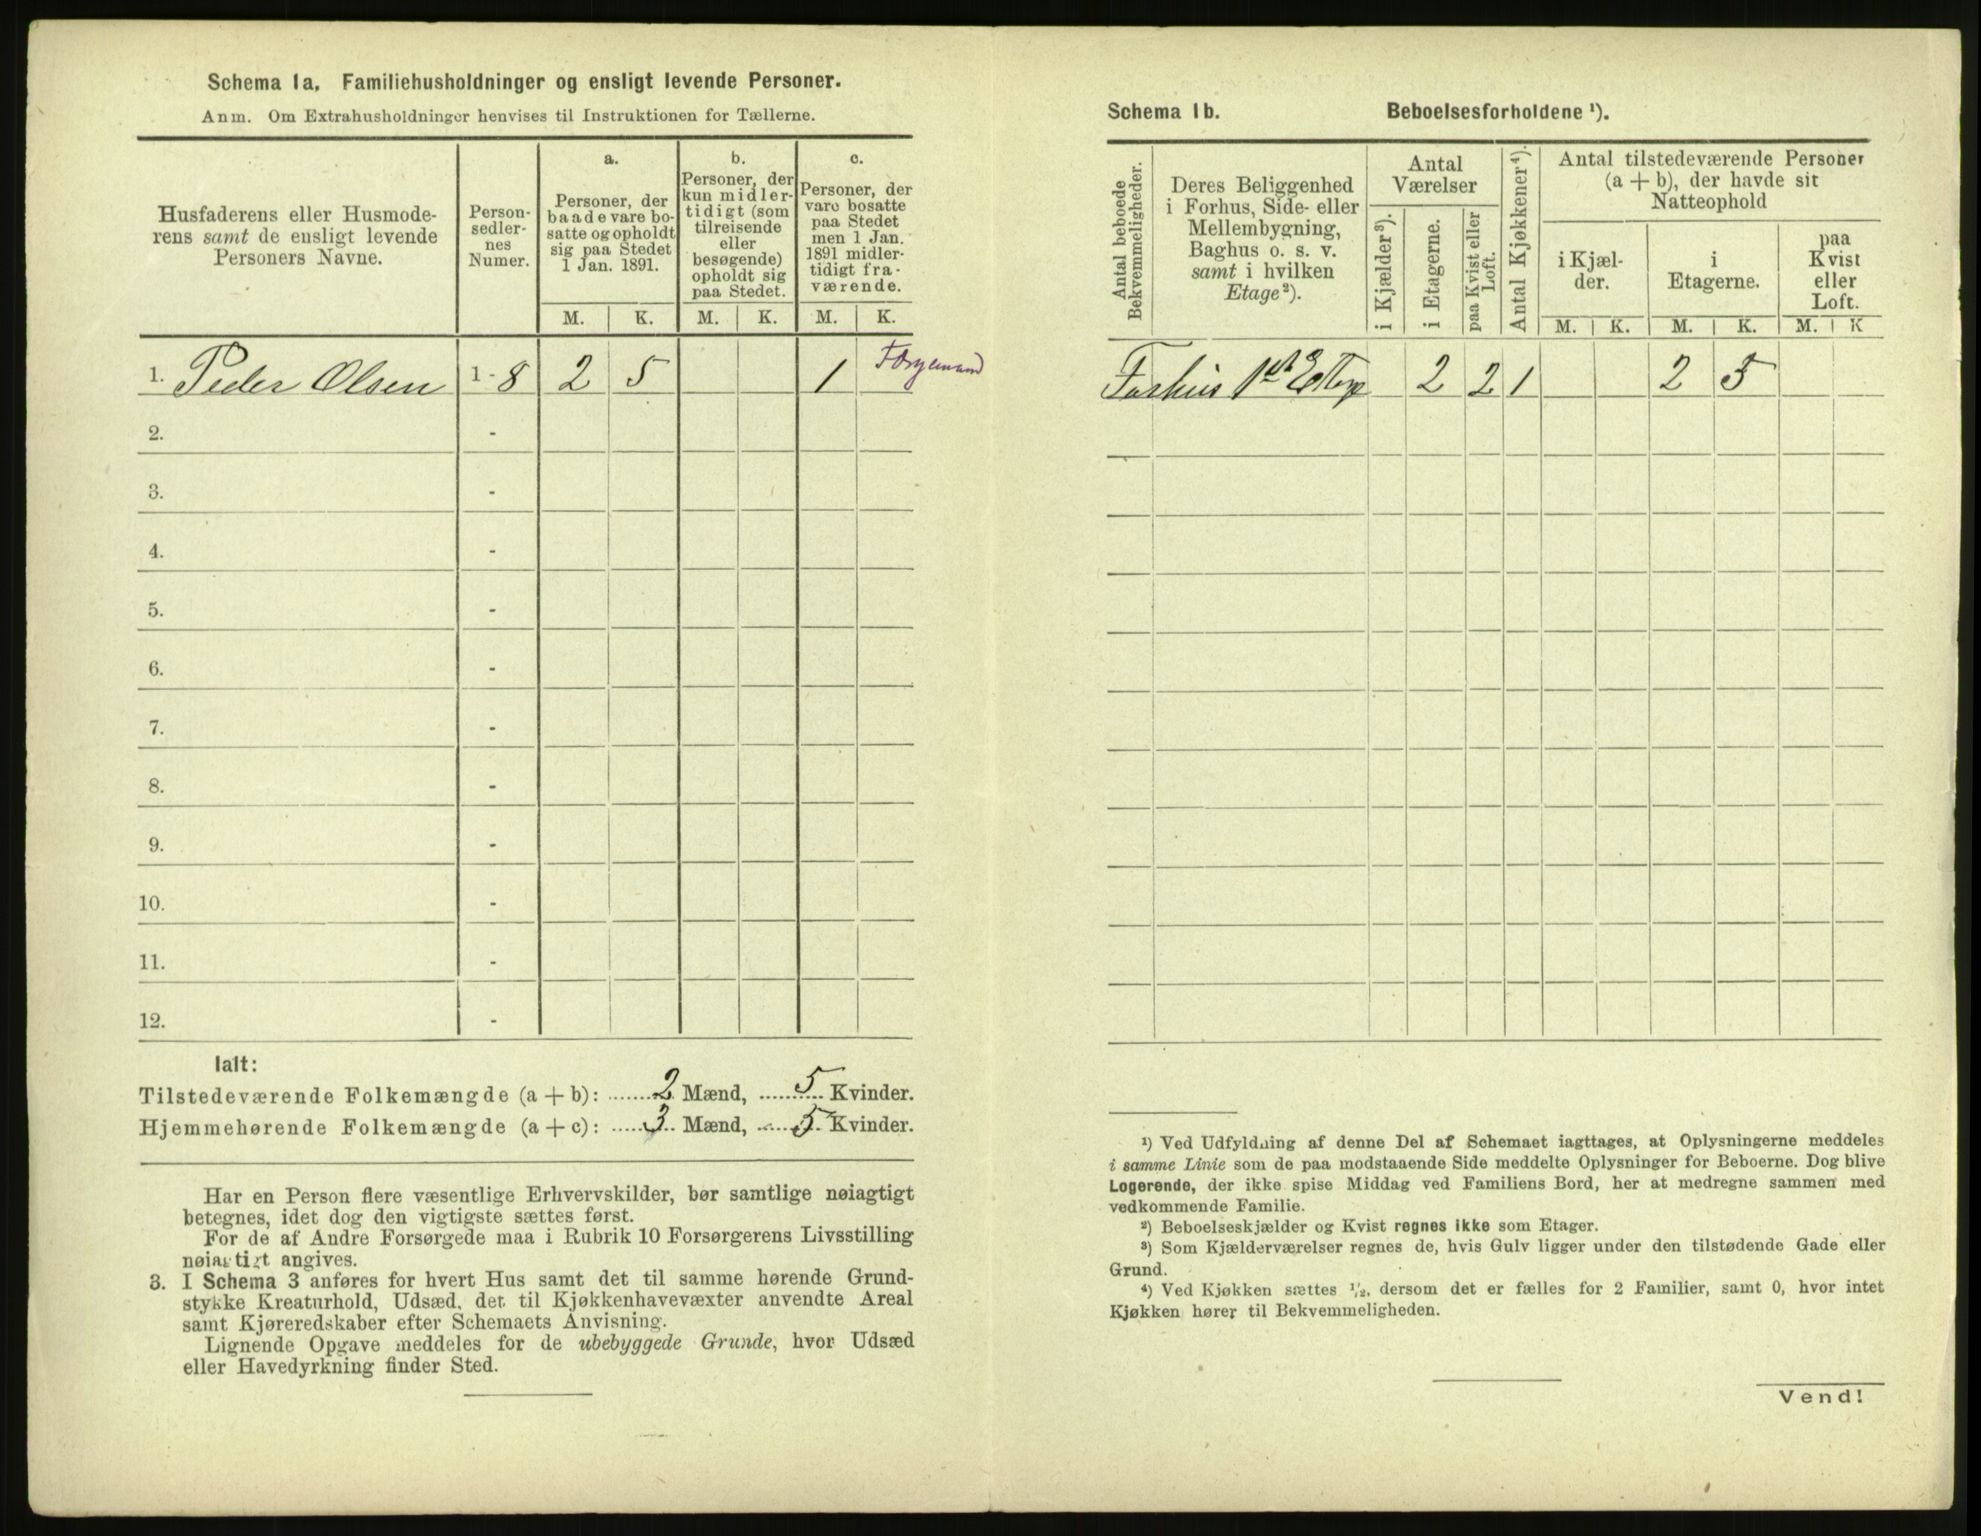 Schema 1a. Familiehusholdninger og ensligt levende Personer.
Anm. Om Extrahusholdninger henvises til Instruktionen for Tællerne.
Husfaderens eller Husmode-
rens samt de ensligt levende
Personers Navne.
Person-
sedler-
nes
Numer.
a.
Personer, der
baade vare bo-
satte og opholdt
sig paa Stedet
1 Jan. 1891.
b.
Personer, der
kun midler-
tidigt (som
tilreisende
eller
besøgende)
opholdt sig
paa Stedet.
c.
Personer, der
vare bosatte
paa Stedet
men 1 Jan.
1891 midler-
tidigt fra-
værende.
M. K. M. K. M. K.
1. Peder Olsen 1 - 8 2 5 1
2. -
3. -
4. -
5. -
6. -
7. -
8. -
9. -
10. -
11. -
12. -
Ialt:
Tilstedeværende Folkemængde (a + b): 2 Mænd, 5 Kvinder.
Hjemmehørende Folkemængde (a + c): 3 Mænd, 5 Kvinder.
Har en Person flere væsentlige Erhvervskilder, bør samtlige nøiagtigt
betegnes, idet dog den vigtigste sættes først.
For de af Andre Forsørgede maa i Rubrik 10 Forsørgerens Livsstilling
nøiagtigt angives.
3. I Schema 3 anføres for hvert Hus samt det til samme hørende Grund-
stykke Kreaturhold, Udsæd, det til Kjøkkenhavevæxter anvendte Areal
samt Kjøreredskaber efter Schemaets Anvisning.
Lignende Opgave meddeles for de ubebyggede Grunde, hvor Udsæd
eller Havedyrkning finder Sted.
Schema 1b. Beboelsesforholdene ¹).
Antal beboede
Bekvemmeligheder.
Deres Beliggenhed
i Forhus, Side- eller
Mellembygning,
Baghus o. s. v.
samt i hvilken
Etage²).
Antal
Værelser
i Kjælder³).
i Etagerne.
paa Kvist eller
Loft.
Antal Kjøkkener⁴).
Antal tilstedeværende Personer
(a + b), der havde sit
Natteophold
i Kjæl-
der.
i
Etagerne.
paa
Kvist
eller
Loft.
M. K. M. K. M. K
Forhus 1st Etage 2 2 1 2 5
¹) Ved Udfyldning af denne Del af Schemaet iagttages, at Oplysningerne meddeles
i samme Linie som de paa modstaaende Side meddelte Oplysninger for Beboerne. Dog blive
Logerende, der ikke spise Middag ved Familiens Bord, her at medregne sammen med
vedkommende Familie.
²) Beboelseskjælder og Kvist regnes ikke som Etager.
³) Som Kjælderværelser regnes de, hvis Gulv ligger under den tilstødende Gade eller
Grund.
⁴) Ved Kjøkken sættes ¹/₂, dersom det er fælles for 2 Familier, samt 0, hvor intet
Kjøkken hører til Bekvemmeligheden.
Vend!